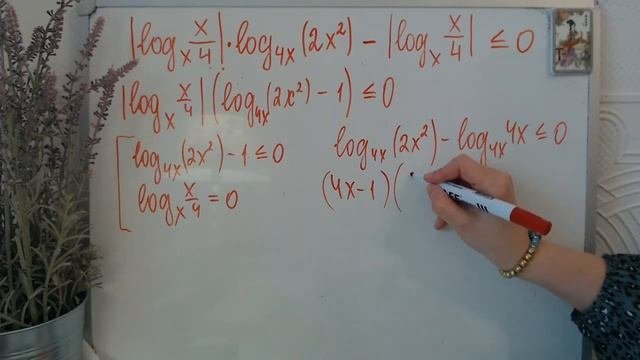 |log_x x/4| · log_4x (2x²) − |log_x x/4| ≤ 0
|log_x x/4| (log_4x (2x²) − 1) ≤ 0
[ log_4x (2x²) − 1 ≤ 0
log_x x/4 = 0
log_4x (2x²) − log_4x 4x ≤ 0
(4x−1)(